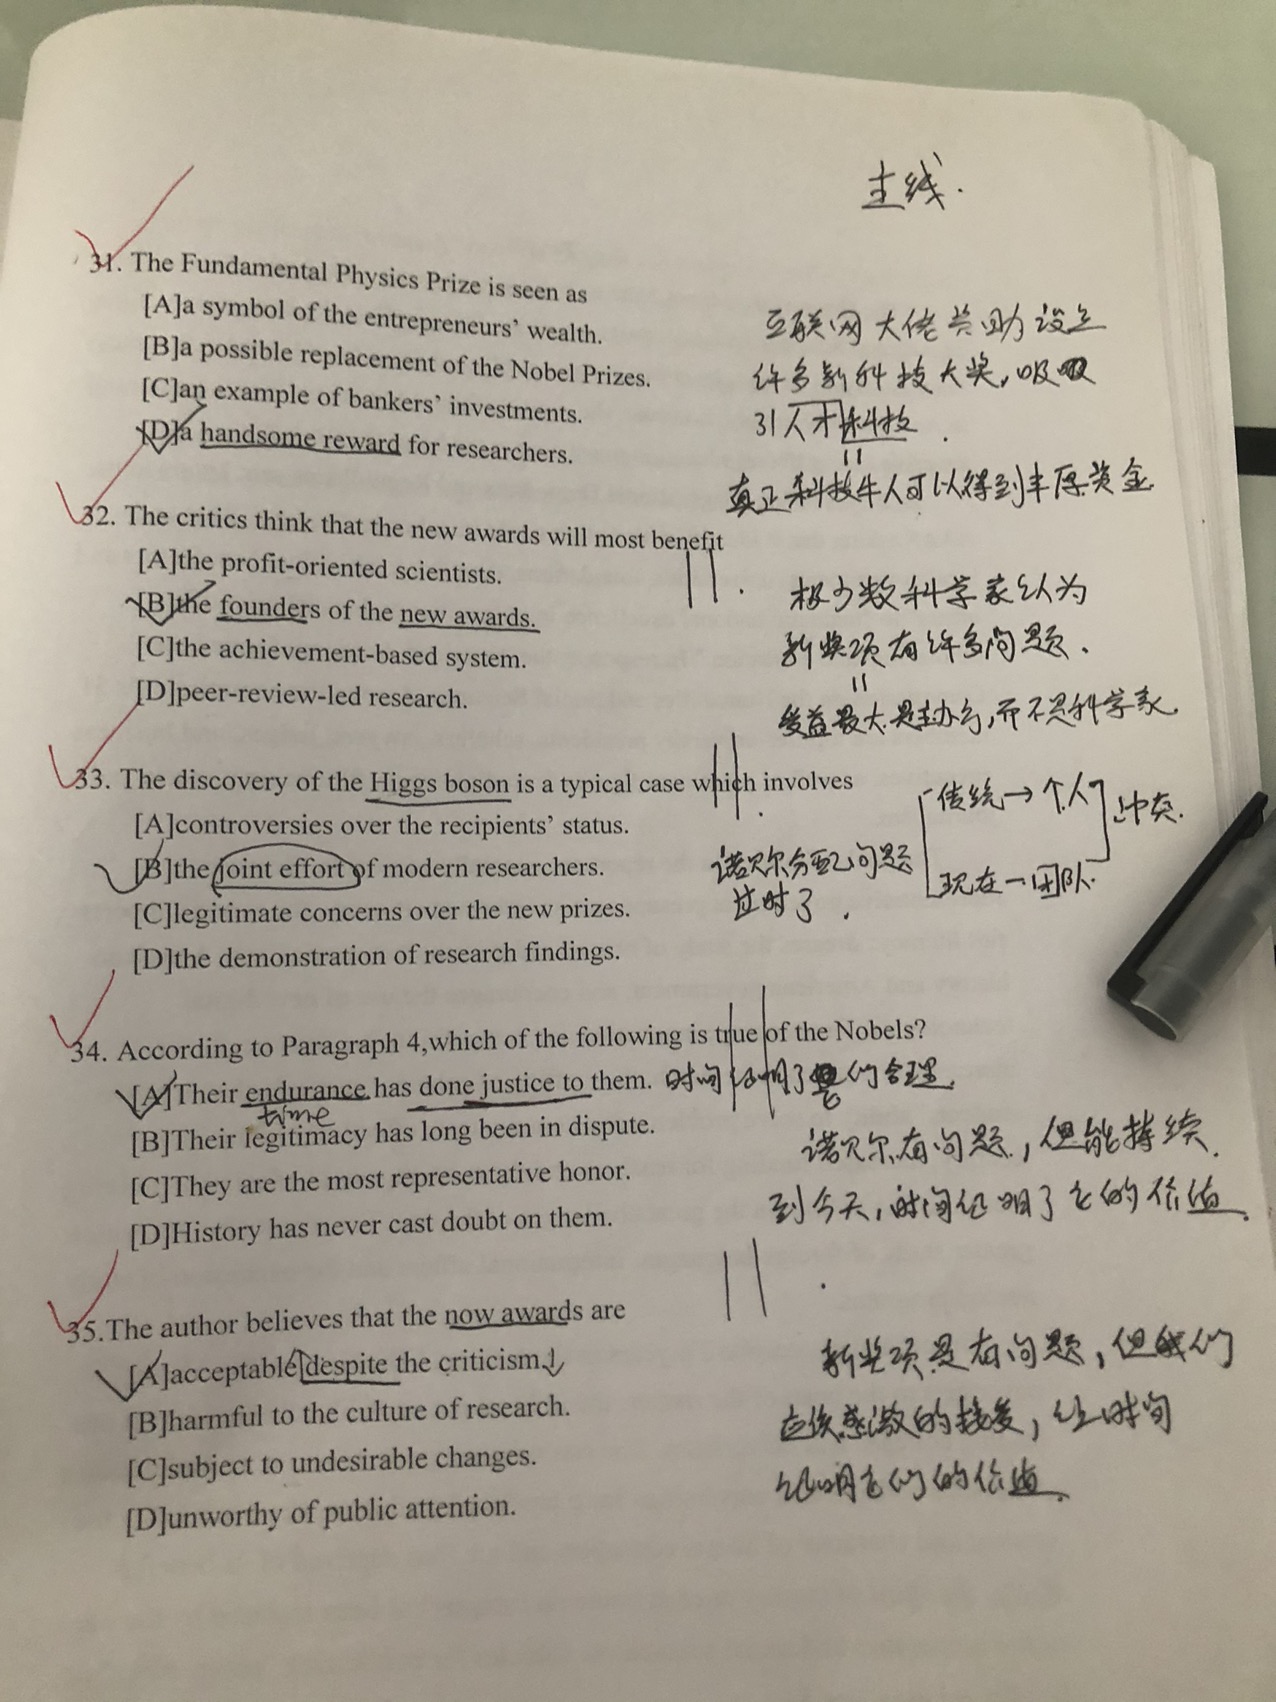 主线.
31. The Fundamental Physics Prize is seen as
[A]a symbol of the entrepreneurs' wealth.
[B]a possible replacement of the Nobel Prizes.
[C]an example of bankers' investments.
[D]a handsome reward for researchers.
互联网大佬共助设立
许多新科技大奖,吸
引人才科技.
真正科技牛人可以得到丰厚奖金
32. The critics think that the new awards will most benefit
[A]the profit-oriented scientists.
[B]the founders of the new awards.
[C]the achievement-based system.
[D]peer-review-led research.
极少数科学家认为
新奖项有许多问题.
受益最大是主办方,而不是科学家.
33. The discovery of the Higgs boson is a typical case which involves
[A]controversies over the recipients' status.
[B]the joint effort of modern researchers.
[C]legitimate concerns over the new prizes.
[D]the demonstration of research findings.
诺贝尔分配问题
过时了.
传统→个人
冲突.
现在—团队.
34. According to Paragraph 4,which of the following is true of the Nobels?
[A]Their endurance has done justice to them. 时间证明了它们合理
time
[B]Their legitimacy has long been in dispute.
[C]They are the most representative honor.
[D]History has never cast doubt on them.
诺贝尔有问题,但能持续
到今天,时间证明了它的价值.
35.The author believes that the now awards are
[A]acceptable despite the criticism.
[B]harmful to the culture of research.
[C]subject to undesirable changes.
[D]unworthy of public attention.
新奖项是有问题,但我们
应该感激的接受,让时间
证明它们的价值.